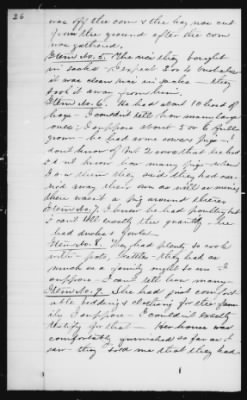 26
was off the corn & the hay was cut
from the ground after the corn
was gathered.
Item No. 5. The rice they brought
in sacks - I expect 3 or 4 bushels
it was clean rice in sacks - they
took it away from him.
Item No. 6. He had about 10 head of
hogs - I couldn't tell how many large
ones; I suppose about 5 or 6 full
grown - he had some sows & pigs - I
don't know if but 2 sows that he had
I dont know how many pigs - when
I saw them they said they had car-
ried away their own as well as mine
there wasn't a pig around there
Item No. 7. I know he had poultry but
I can't tell exactly the quantity - he
had ducks & fowls.
Item No. 8. They had plenty to cook
with - pots, kettles - they had as
much as a family ought to use I
suppose - I can't tell how many.
Item No. 9. She had just comfort-
able bedding & clothing for the fam-
ily I suppose - I couldn't exactly
testify for that - Her house was
comfortably furnished so far as I
saw - they told me that they had